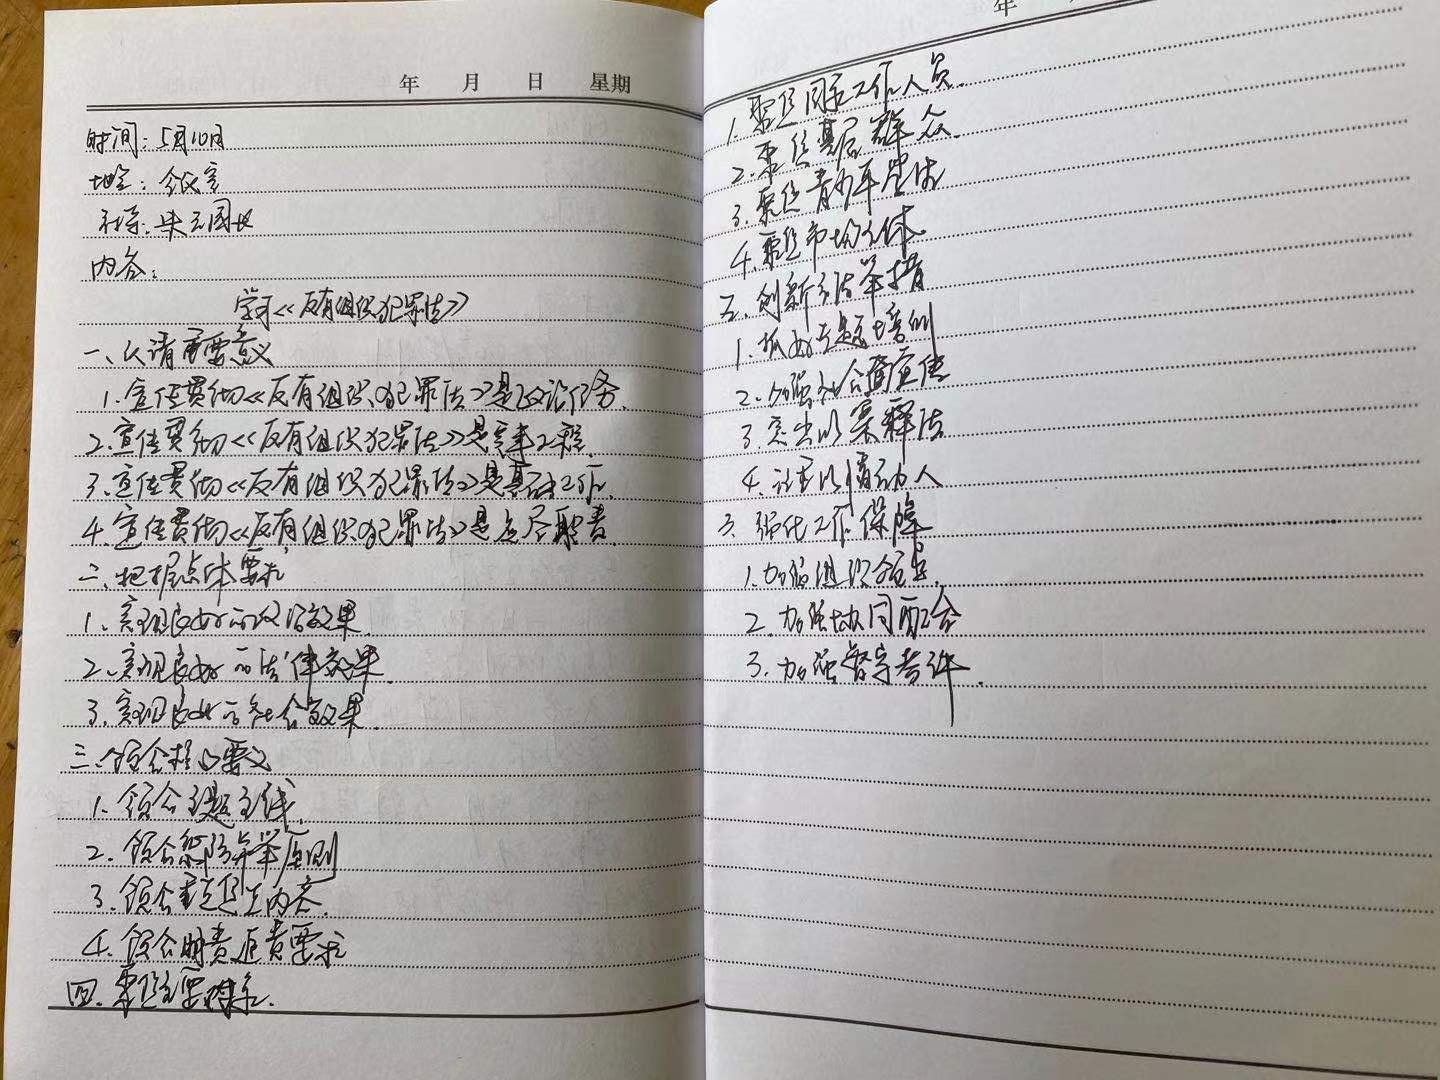 年 月 日 星期
时间：5月10日
地点：会议室
主持：
内容：
学习《反有组织犯罪法》
一、认清重要意义
1.宣传贯彻《反有组织犯罪法》是政治任务.
2.宣传贯彻《反有组织犯罪法》是工程.
3.宣传贯彻《反有组织犯罪法》是基础工作.
4.宣传贯彻《反有组织犯罪法》是应尽职责
二、把握总体要求
1.实现良好的政治效果.
2.实现良好的法律效果.
3.实现良好的社会效果.
三.领会核心要义
1.领会主题主线.
2.领会惩防并举原则
3.领会重点内容.
4.领会明责追责要求
四.覆盖主要群体.
年
1.覆盖国家工作人员.
2.覆盖基层群众.
3.覆盖青少年群体
4.覆盖市场主体.
五.创新方法举措
1.抓好专题培训
2.加强社会面宣传
3.突出以案释法
4.注重以情动人
3.强化工作保障
1.加强组织领导.
2.加强协同配合
3.加强督导考评.